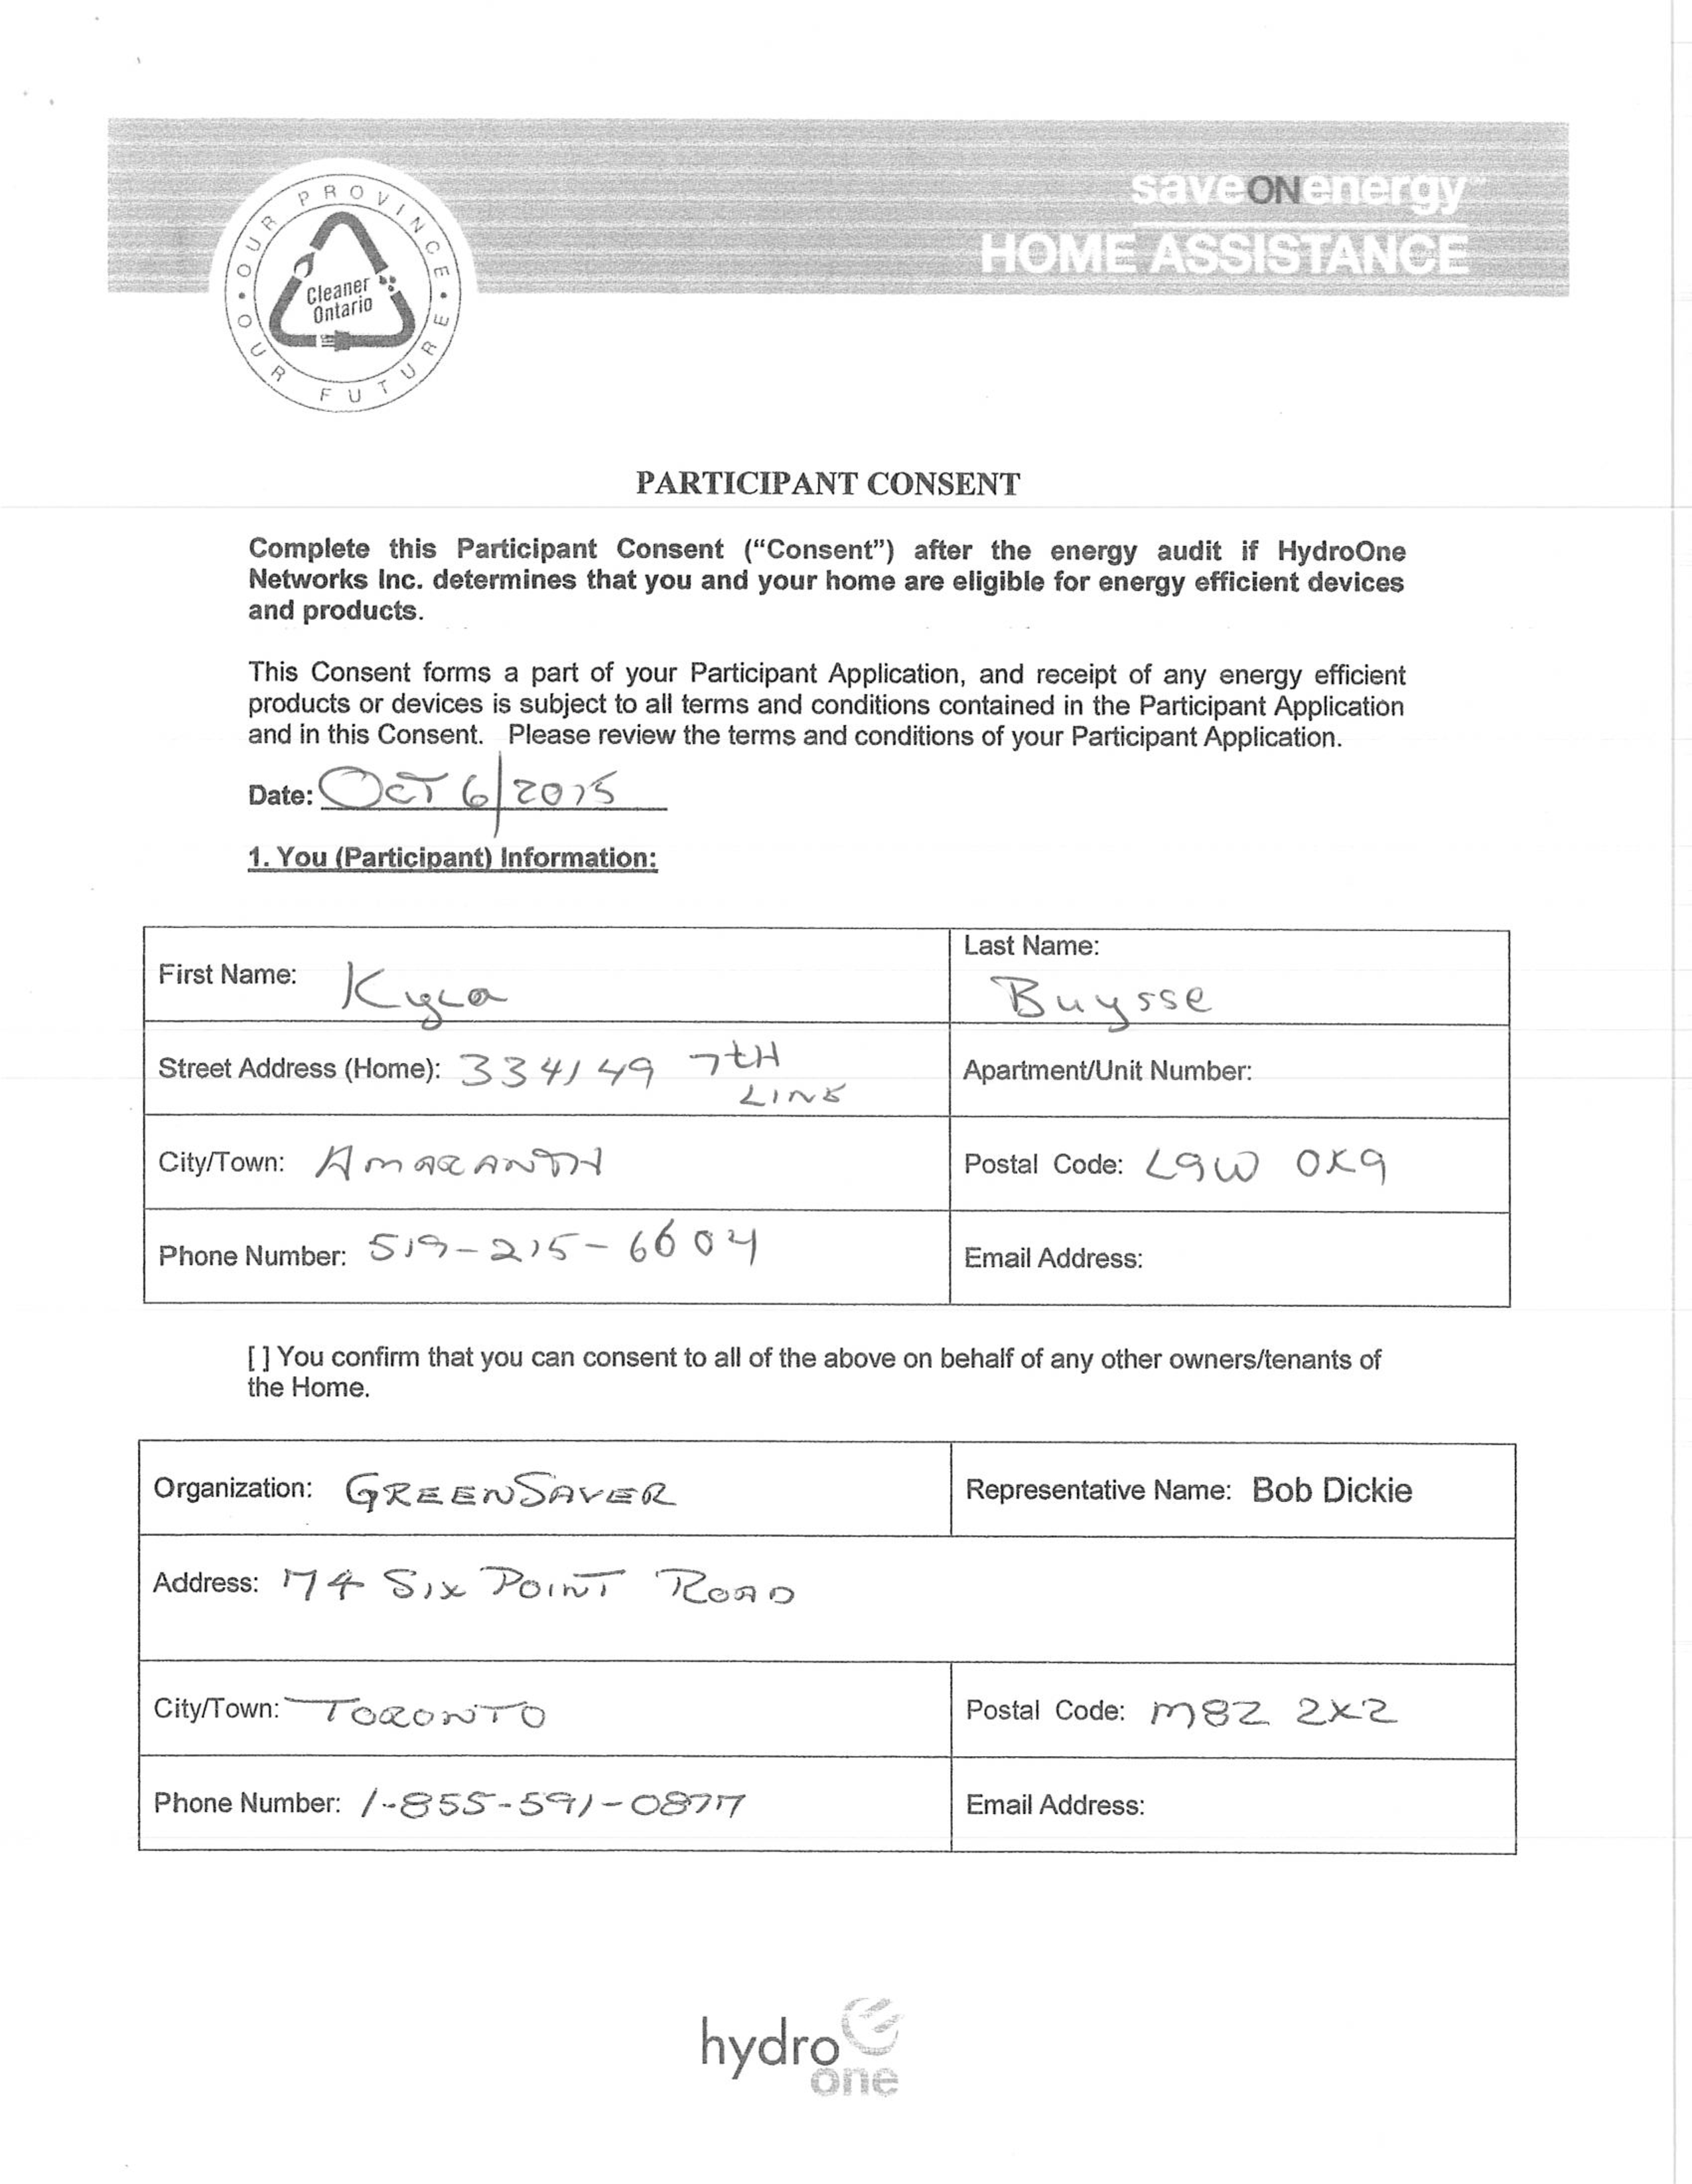 OUR PROVINCE • OUR FUTURE •
Cleaner
Ontario
saveONenergy
HOME ASSISTANCE
PARTICIPANT CONSENT
Complete this Participant Consent (“Consent”) after the energy audit if HydroOne
Networks Inc. determines that you and your home are eligible for energy efficient devices
and products.
This Consent forms a part of your Participant Application, and receipt of any energy efficient
products or devices is subject to all terms and conditions contained in the Participant Application
and in this Consent. Please review the terms and conditions of your Participant Application.
Date: OCT 6/2015
1. You (Participant) Information:
First Name: Kyla
Last Name:
Buysse
Street Address (Home): 334149 7TH
LINE
Apartment/Unit Number:
City/Town: AMARANTH
Postal Code: L9W 0K9
Phone Number: 519-215-6604
Email Address:
[ ] You confirm that you can consent to all of the above on behalf of any other owners/tenants of
the Home.
Organization: GREENSAVER
Representative Name: Bob Dickie
Address: 74 SIX POINT ROAD
City/Town: TORONTO
Postal Code: M8Z 2X2
Phone Number: 1-855-591-0877
Email Address:
hydro
one